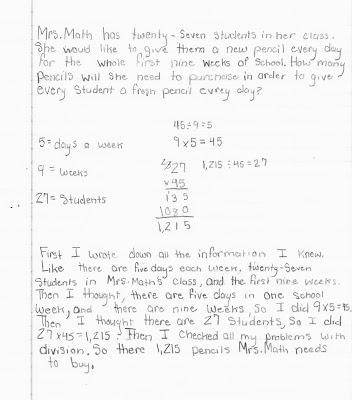 Mrs. Math has twenty-Seven students in her class.
She would like to give them a new pencil every day
for the whole first nine weeks of school. How many
Pencils will she need to purchase in order to give
every Student a fresh pencil evrey day?
45÷9=5
5=days a week
9×5=45
9=weeks
2/3
27
1,215÷45=27
×45
27=Students
135
1080
1,215
First I wrote down all the information I knew.
Like there are five days each week, twenty-Seven
Students in Mrs. Math's class, and the first nine weeks.
Then I thought, there are five days in one school
week, and there are nine weeks, So I did 9×5=45.
Then I thought there are 27 Students, So I did
27×45=1,215. Then I checked all my problems with
division. So there 1,215 pencils Mrs. Math needs
to buy.